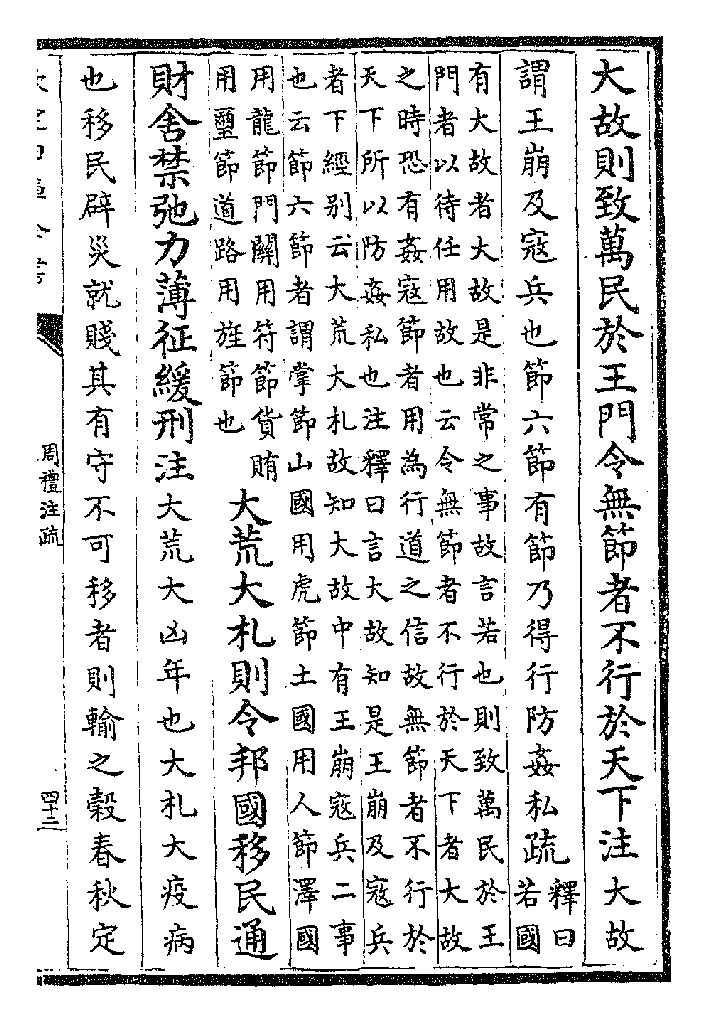 大故則致萬民於王門令無節者不行於天下注大故
謂王崩及寇兵也節六節有節乃得行防姦私疏
釋曰
若國
有大故者大故是非常之事故言若也則致萬民於王
門者以待任用故也云令無節者不行於天下者大故
之時恐有姦寇節者用為行道之信故無節者不行於
天下所以防姦私也注釋曰言大故知是王崩及寇兵
者下經别云大荒大札故知大故中有王崩寇兵二事
也云節六節者謂掌節山國用虎節土國用人節澤國
用龍節門關用符節貨賄
用璽節道路用旌節也
大荒大札則令邦國移民通
財舍禁弛力薄征緩刑注大荒大凶年也大札大疫病
也移民辟災就賤其有守不可移者則輸之穀春秋定
周禮注疏
四十三